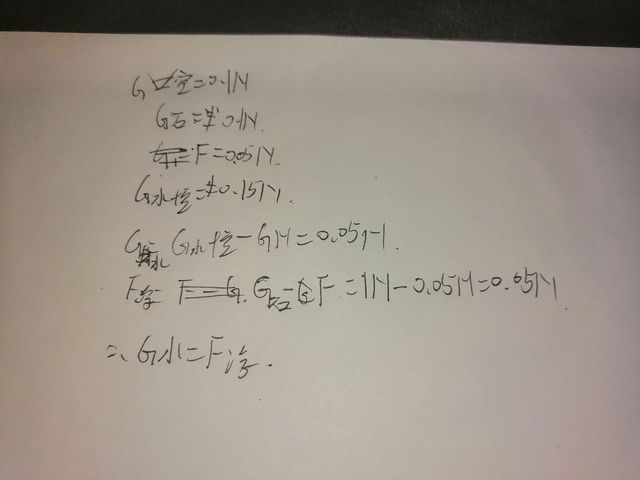 G空=0.1N
G石=0.1N.
F=0.05N.
G水+空=0.15N.
G水+空-GH=0.05N.
F浮= G石-F=1N-0.05N=0.05N
∴G水=F浮.